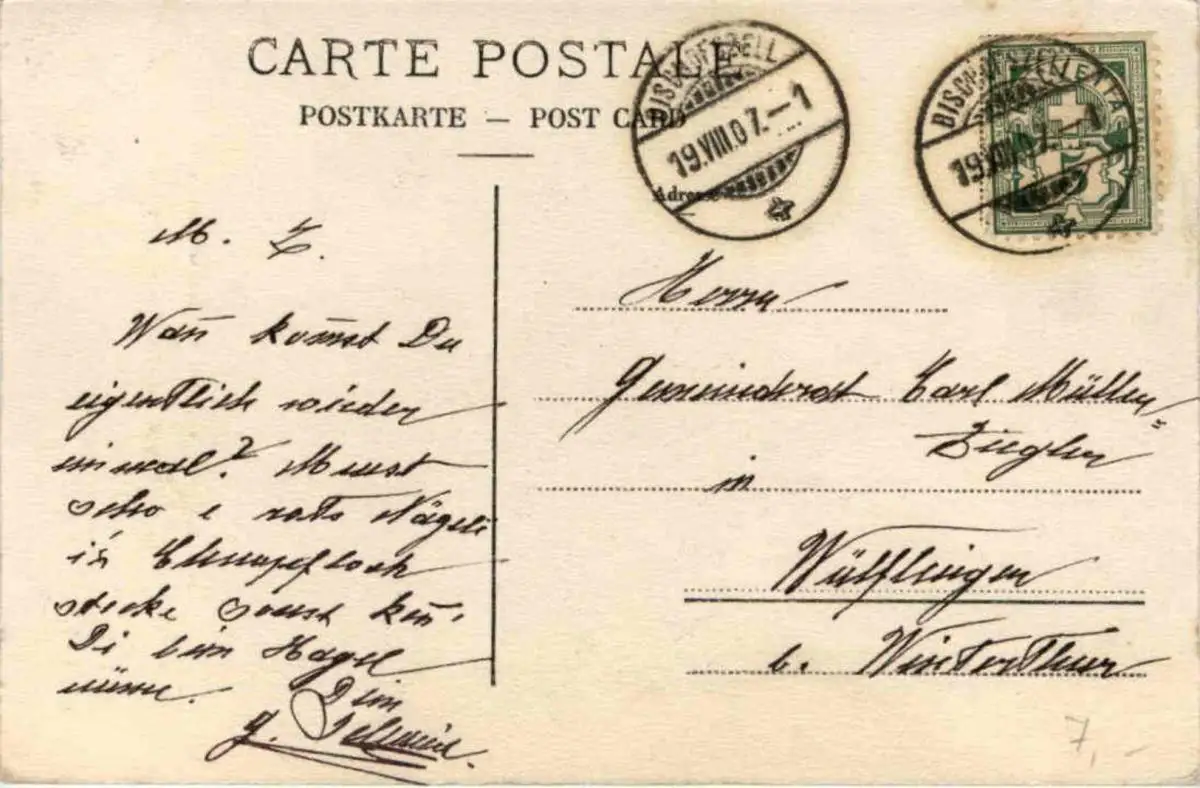 CARTE POSTALE
POSTKARTE — POST CARD
BISCHOFSZELL
19.VIII.07.–1
BISCHOFSZELL
19.VIII.07.–1
5
Adresse
M. L.
Wan̄ kom̄st Du
eigentlich wieder
einmal? Muest
scho e rots Nägeli
is Chnopfloch
stecke suust kön̄
Di bim Hagel
nüme.
Dein
G. Schmid.
Herrn
Gemeinderat Carl Müller-
Ziegler
in
Wülflingen
b. Winterthur
7,-